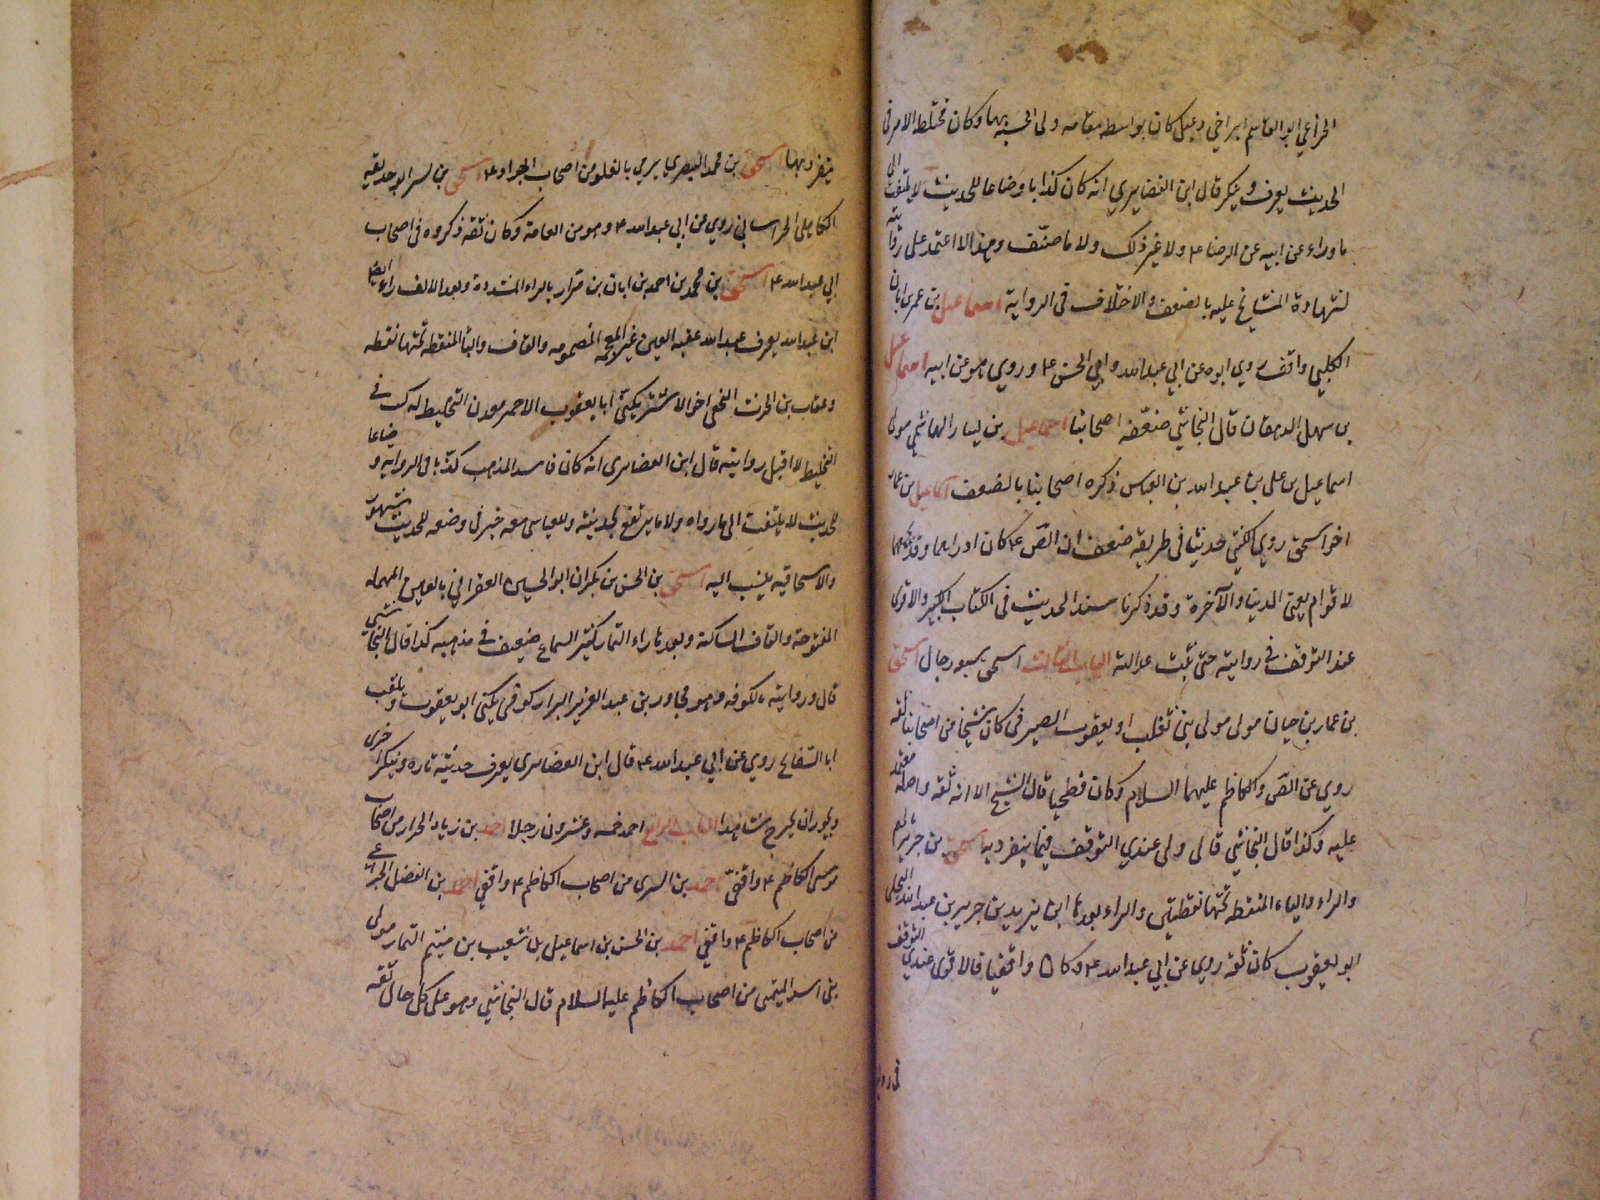 الخزاعي ابو القاسم ابن اخي دعبل كان بواسط مقامه ولى الحسبة بها وكان مختلط الامر في
الحديث يعرف وينكر قال ابن الغضايري انه كان كذابا وضاعا للحديث لا يلتفت الى
ما رواه عن ابيه عن الرضا ع ولا غير ذلك ولا ما صنّف وهذا لا اعتمد على روايته
لشهادة المشايخ عليه بالضعف والاختلاف في الرواية اسماعيل بن عمر بن ابان
الكلبي واقف روى ابوه عن ابي عبد الله وابي الحسن ع وروى هو عن ابيه اسماعيل
بن سهل الدهقان قال النجاشي ضعّفه اصحابنا اسماعيل بن يسار الهاشمي مولى
اسماعيل بن علي بن عبد الله بن العباس ذكره اصحابنا بالضعف اسماعيل بن عمار
اخو اسحق روى الكشي حديثا في طريقه ضعف ان الصّ ع كان اذا راهما وقد يجمعهما
لاقوام يعنى الدنيا والآخرة وقد ذكرنا سند الحديث في الكتاب الكبير والاقوى
عند التوقف في روايته حتى تثبت عدالته الباب الثالث اسحق سبعه رجال اسحق
بن عمار بن حيان مولى مولى بني تغلب ابو يعقوب الصيرفي كان شيخا من اصحابنا ثقة
روى عن الصّ والكاظم عليهما السلام وكان فطحيا قال الشيخ الا انه ثقة واصله معتمد
عليه وكذا قال النجاشي قال ولى عندي التوقف فيما ينفرد به اسحق بن جرير بالجيم
والراء والياء المنقطه تحتها نقطتين والراء بعدها ابن يزيد بن جرير بن عبد الله البجلي
ابو يعقوب كان ثقة روى عن ابي عبد الله ع وكان واقفيا فالاقوى عندي التوقف
في روا
ينفرد بها اسحق بن محمد البصري يرمى بالغلو من اصحاب الجواد ع اسحق بن بشر ابو حذيفه
الكاهلى الخراساني روى عن ابي عبد الله ع وهو من العامة وكان ثقه ذكروه في اصحاب
ابي عبد الله ع اسحق بن محمد بن احمد بن ابان بن مرار بالراء المشددة وبعد الالف راء ايضا
ابن عبد الله يعرف عبد الله عقبه العين غير المعجمه المضمومه والقاف والبا المنقطه تحتها نقطه
وعقاب بن الحرث النخعي اخو الاشتر يكنى ابا يعقوب الاحمر معدن التخليط له كتب في
التخليط لا اقبل روايته قال ابن الغضايرى انه كان فاسد المذهب كذابا في الروايه وضاعا
للحديث لا يلتفت الى ما رواه ولا ما يرتفع بحديثه وللعياشى معه خبر في وضعه للحديث مشهور
والاسحاقيه ينسب اليه اسحق بن الحسن بن بكران ابو الحسين العقراني بالعين المهمله
المفتوحة والقاف الساكنه وبعدها راء التمار كثير السماع ضعيف في مذهبه كذا قال النجاشي
قال وروايته بالكوفه وهو مجاور بن عبد العزيز البزار كوفي يكنى ابو يعقوب ويلقب
ابا السفاتج روى عن ابي عبد الله ع قال ابن الغضايرى يعرف حديثه تاره وينكر اخرى
ويجوز ان يخرج شاهدا الباب الرابع احمد خمسه وعشرون رجلا احمد بن زياد الخزاز من اصحاب
موسى الكاظم ع واقفي احمد بن السرى من اصحاب الكاظم ع واقفي احمد بن الفضل الخزاعي
من اصحاب الكاظم ع واقفي احمد بن الحسن بن اسماعيل بن شعيب بن ميثم التمار مولى
بني اسد الميثمي من اصحاب الكاظم عليه السلام قال النجاشي وهو على كل حال ثقه